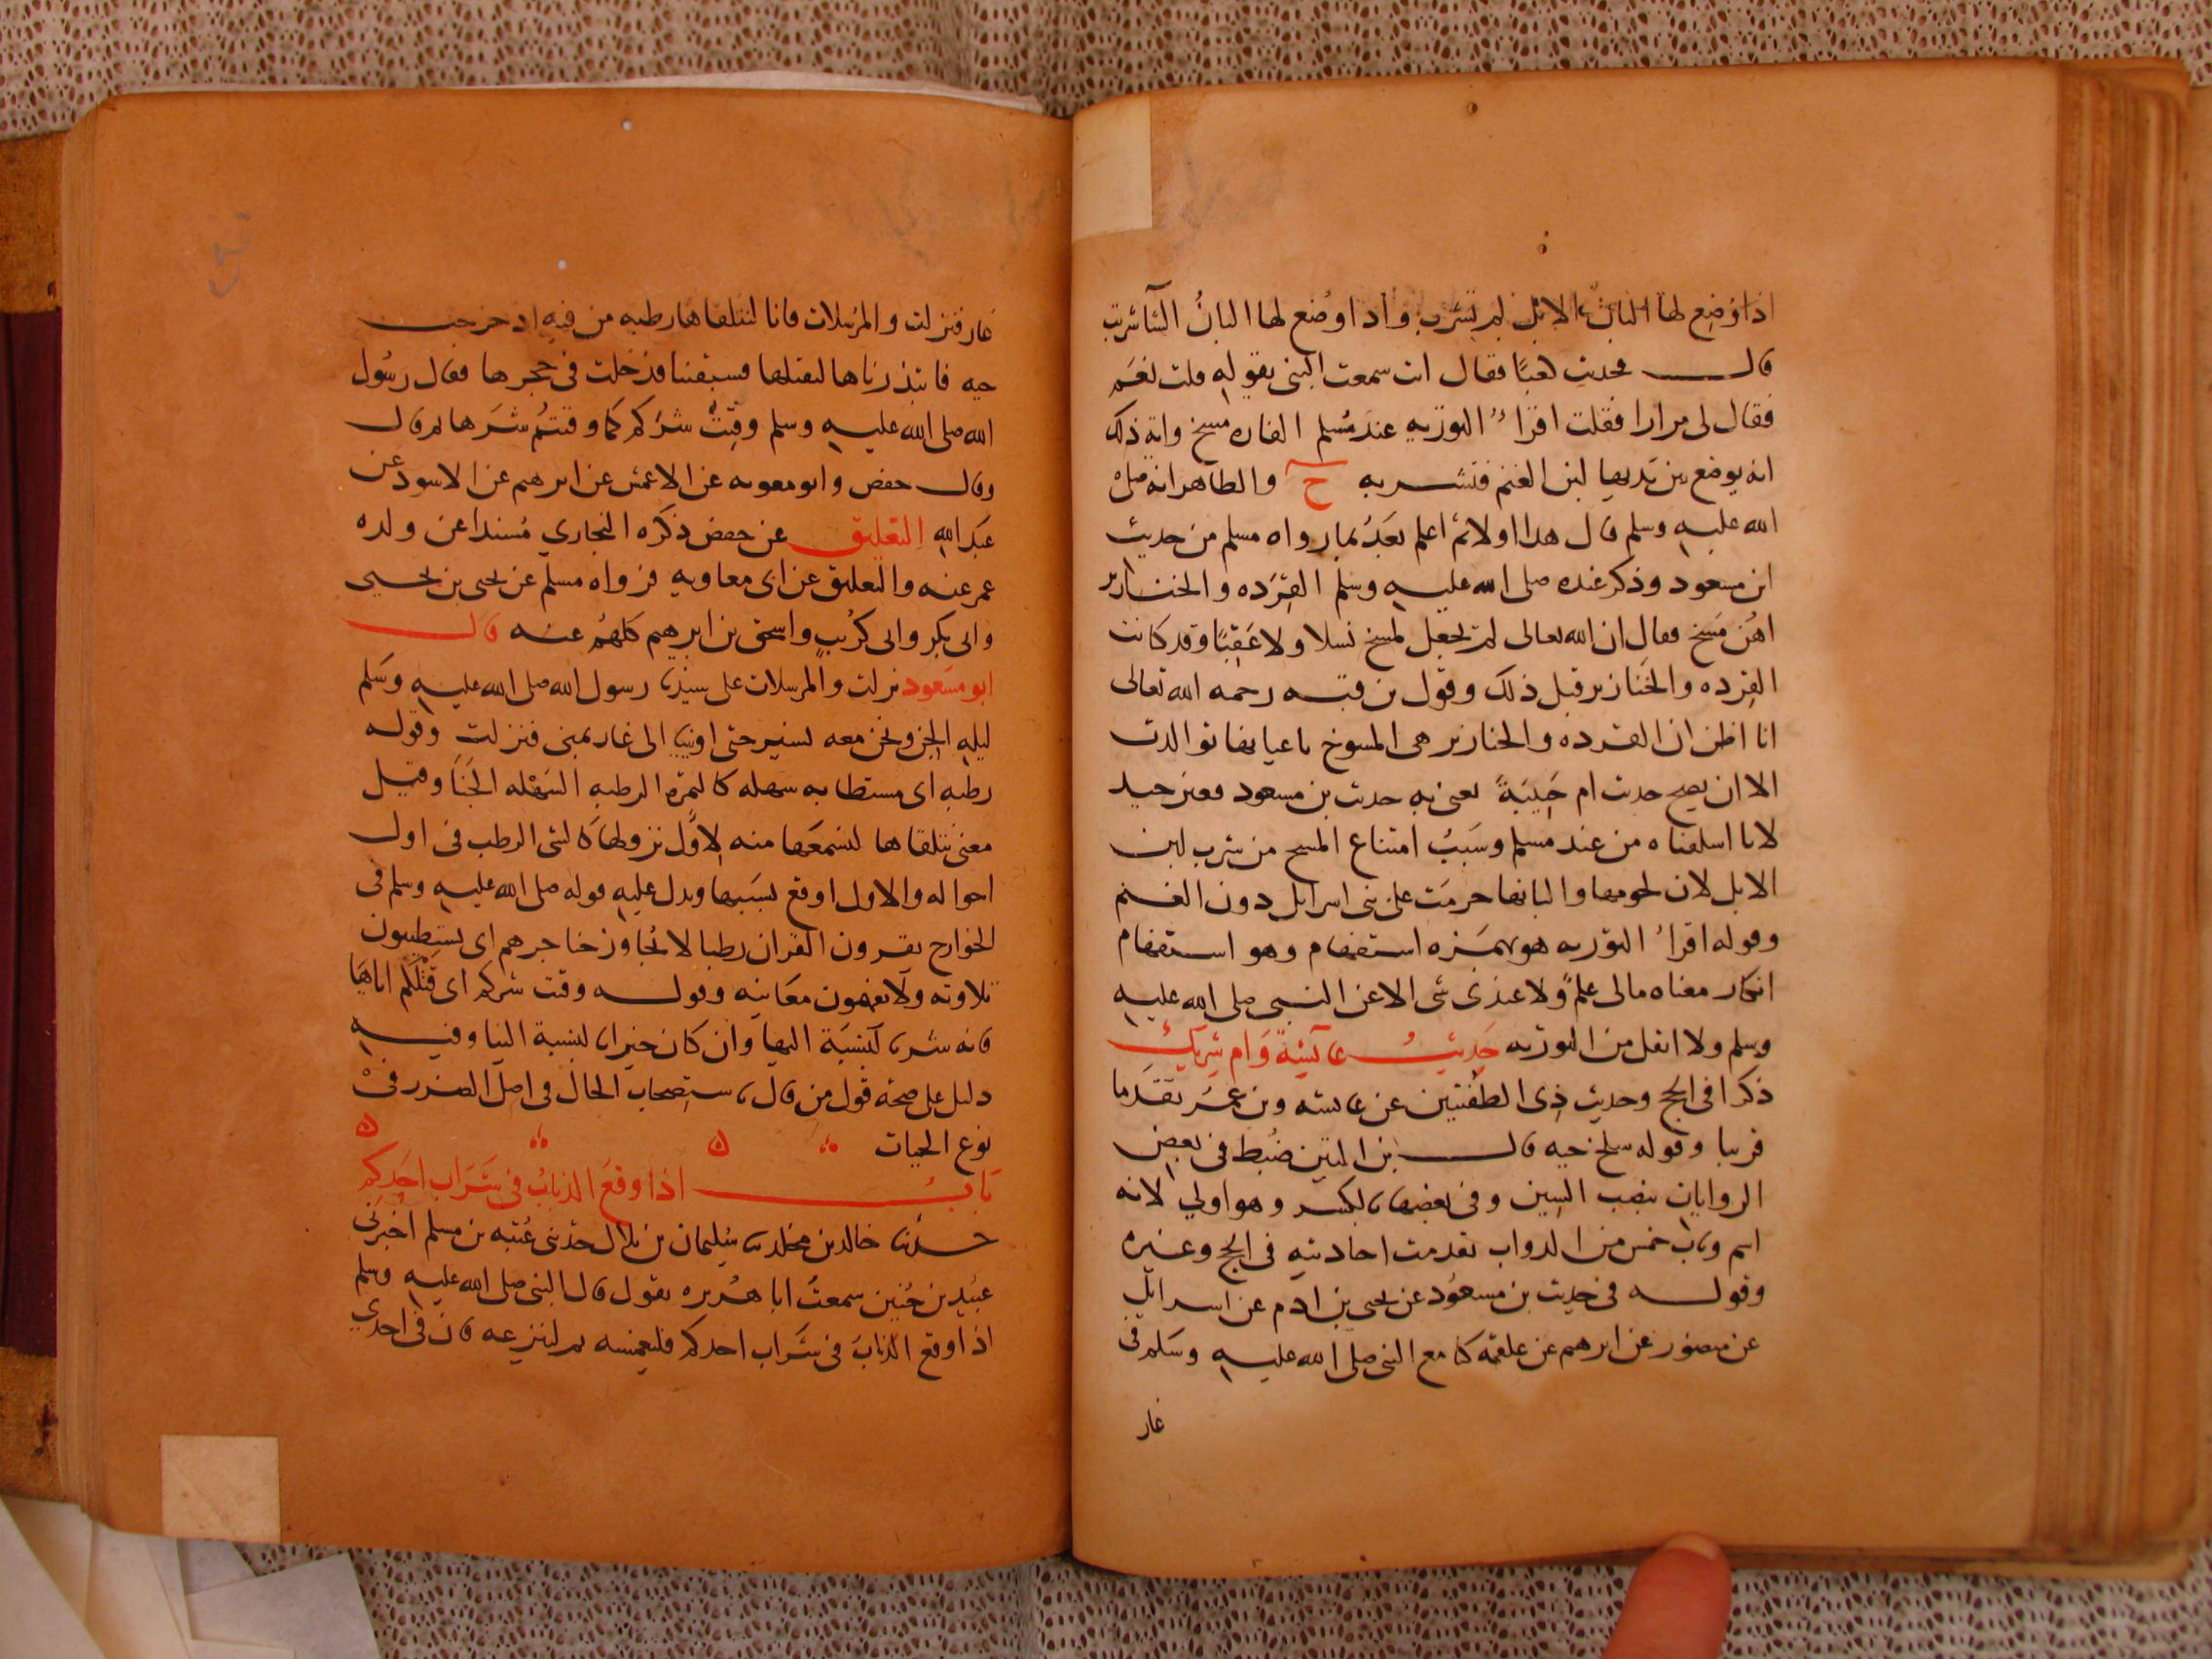 اذا وضع لها البان الابل لم تشرب واذا وضع لها البانُ الشا شربت
قال فحدثت كعبًا فقال انت سمعت النبى يقوله قلت نعَم
فقال لى مرارا فقلت اقرأ التوريه عند مُسلم الفاره مسخ واية ذلك
انه يوضع بين يديها لبن الغنم فتشربه ح والظاهر انه صلى
الله عليه وسلم قال هدا اولا ثم اعلم بَعدُ بما رواه مسلم من حديث
ابن مسعود وذكر عنده صلى الله عليه وسلم القِرَده والخنازير
اهُن مَسخ فقال ان الله تعالى لم يجعل لمسخ نسلا ولا عَقِبًا وقد كانت
القِرده والخَنازير قبل ذلك وقول بن قتيبه رحمه الله تعالى
انا اظن ان القرده والخنازير هى المسوخ باعيانها توالدت
الا ان يصح حديث ام حَبِيبَةً يعنى به حديث بن مسعود فغير جيد
لانا اسلفناه من عند مسلم وسَبَبُ امتناع المسخ من شرب لبن
الابل لان لحومها والبانها حرمَت على بنى اسرايل دون الغنم
وقوله اقرأ التوريه هو بهمَزه استفهام وهو استفهام
انكار معناه مالى علمٌ ولا عندى شى الا عن النبى صلى الله عليه
وسلم ولا انقل من التوريه حَدِيثُ عائشةَ وَام شريك
ذكرا فى الحج وحديث ذِى الطفيتين عن عائشه وبن عمَر تقدما
قريبا وقوله سلخ حيه قال بن التين ضُبط فى بعض
الروايات بنصب السين وفى بعضها بالكسر وهو اولي لانه
اسم وباب خمس من الدواب تقدمت احاديثه فى الحج وغيره
وقوله فى حديث بن مسعُود عن يحيى بن ادم عن اسرائيل
عن منصور عن ابرهيم عن علقمه كنا مع النبى صلى الله عليه وسَلم فى
غار
غار فنزلت والمرسلات فانا لنتلقاها رطبه من فيه اد خرجت
حيه فابتذرناها لنقتلها فسبقتنا فدخلت فى جحرها فقال رسُول
الله صلى الله عليه وسلم وقِيَتْ شرَكم كما وقيتُم شَرَها ثم قال
وقال حفص وابو معويه عن الاعمش عن ابرهيم عن الاسود عن
عَبد الله التعليق عن حفص ذكَره البخاري مُسندا عن ولده
عمر عنه والتعليق عن ابى معاويه فرواه مسلم عن يحيى بن يحيى
وابى بكر وابى كُريب واسحق بن ابرهيم كلهُم عنه قال
ابو مسَعُود نزلت والمرسلات على سيدنا رسول الله صلى الله عليه وسَلم
ليله الجن ونحن معه نسير حتى اوينا الى غار بمنى فنزلت وقوله
رطبه اى مستطابه سهله كالتمرة الرطبه السَهْله الجَنَا وقيل
معنى نتلقاها لنسمَعها منه لاوَّل نزولها كالشى الرطب فى اول
احواله والاول اوقع بسَببها ويدل عليه قوله صلى الله عليه وسلم فى
الخوارج يقرون القران رطبا لا يُجاوز حناجرهم اى يستطِيبون
تلاوته ولا يفهمون معَانيه وقوله وقيت شركم اى قَتْلَكم اياهَا
فانه شر بالنِسْبَة اليها وان كان خيرا بالنسبة الينا وفيه
دليل على صحة قول من قال باستِصحاب الحَال فى اصل الضرر فىْ
نوع الحيات
بَابُ اذا وقعَ الذبابُ فى شَرَاب احَدِكم
حدثنا خالد بن مخلد بنا سُليمان بن بلال حدثنى عُتبه بن مسلم اخبرنى
عبَيد بن حُنين سمعتُ ابا هُريره يقول قال النبى صلى الله عليه وسلم
اذا وقع الذبابَ فى شَراب احدكم فليغمسه ثم لينزعه فان فى احدي